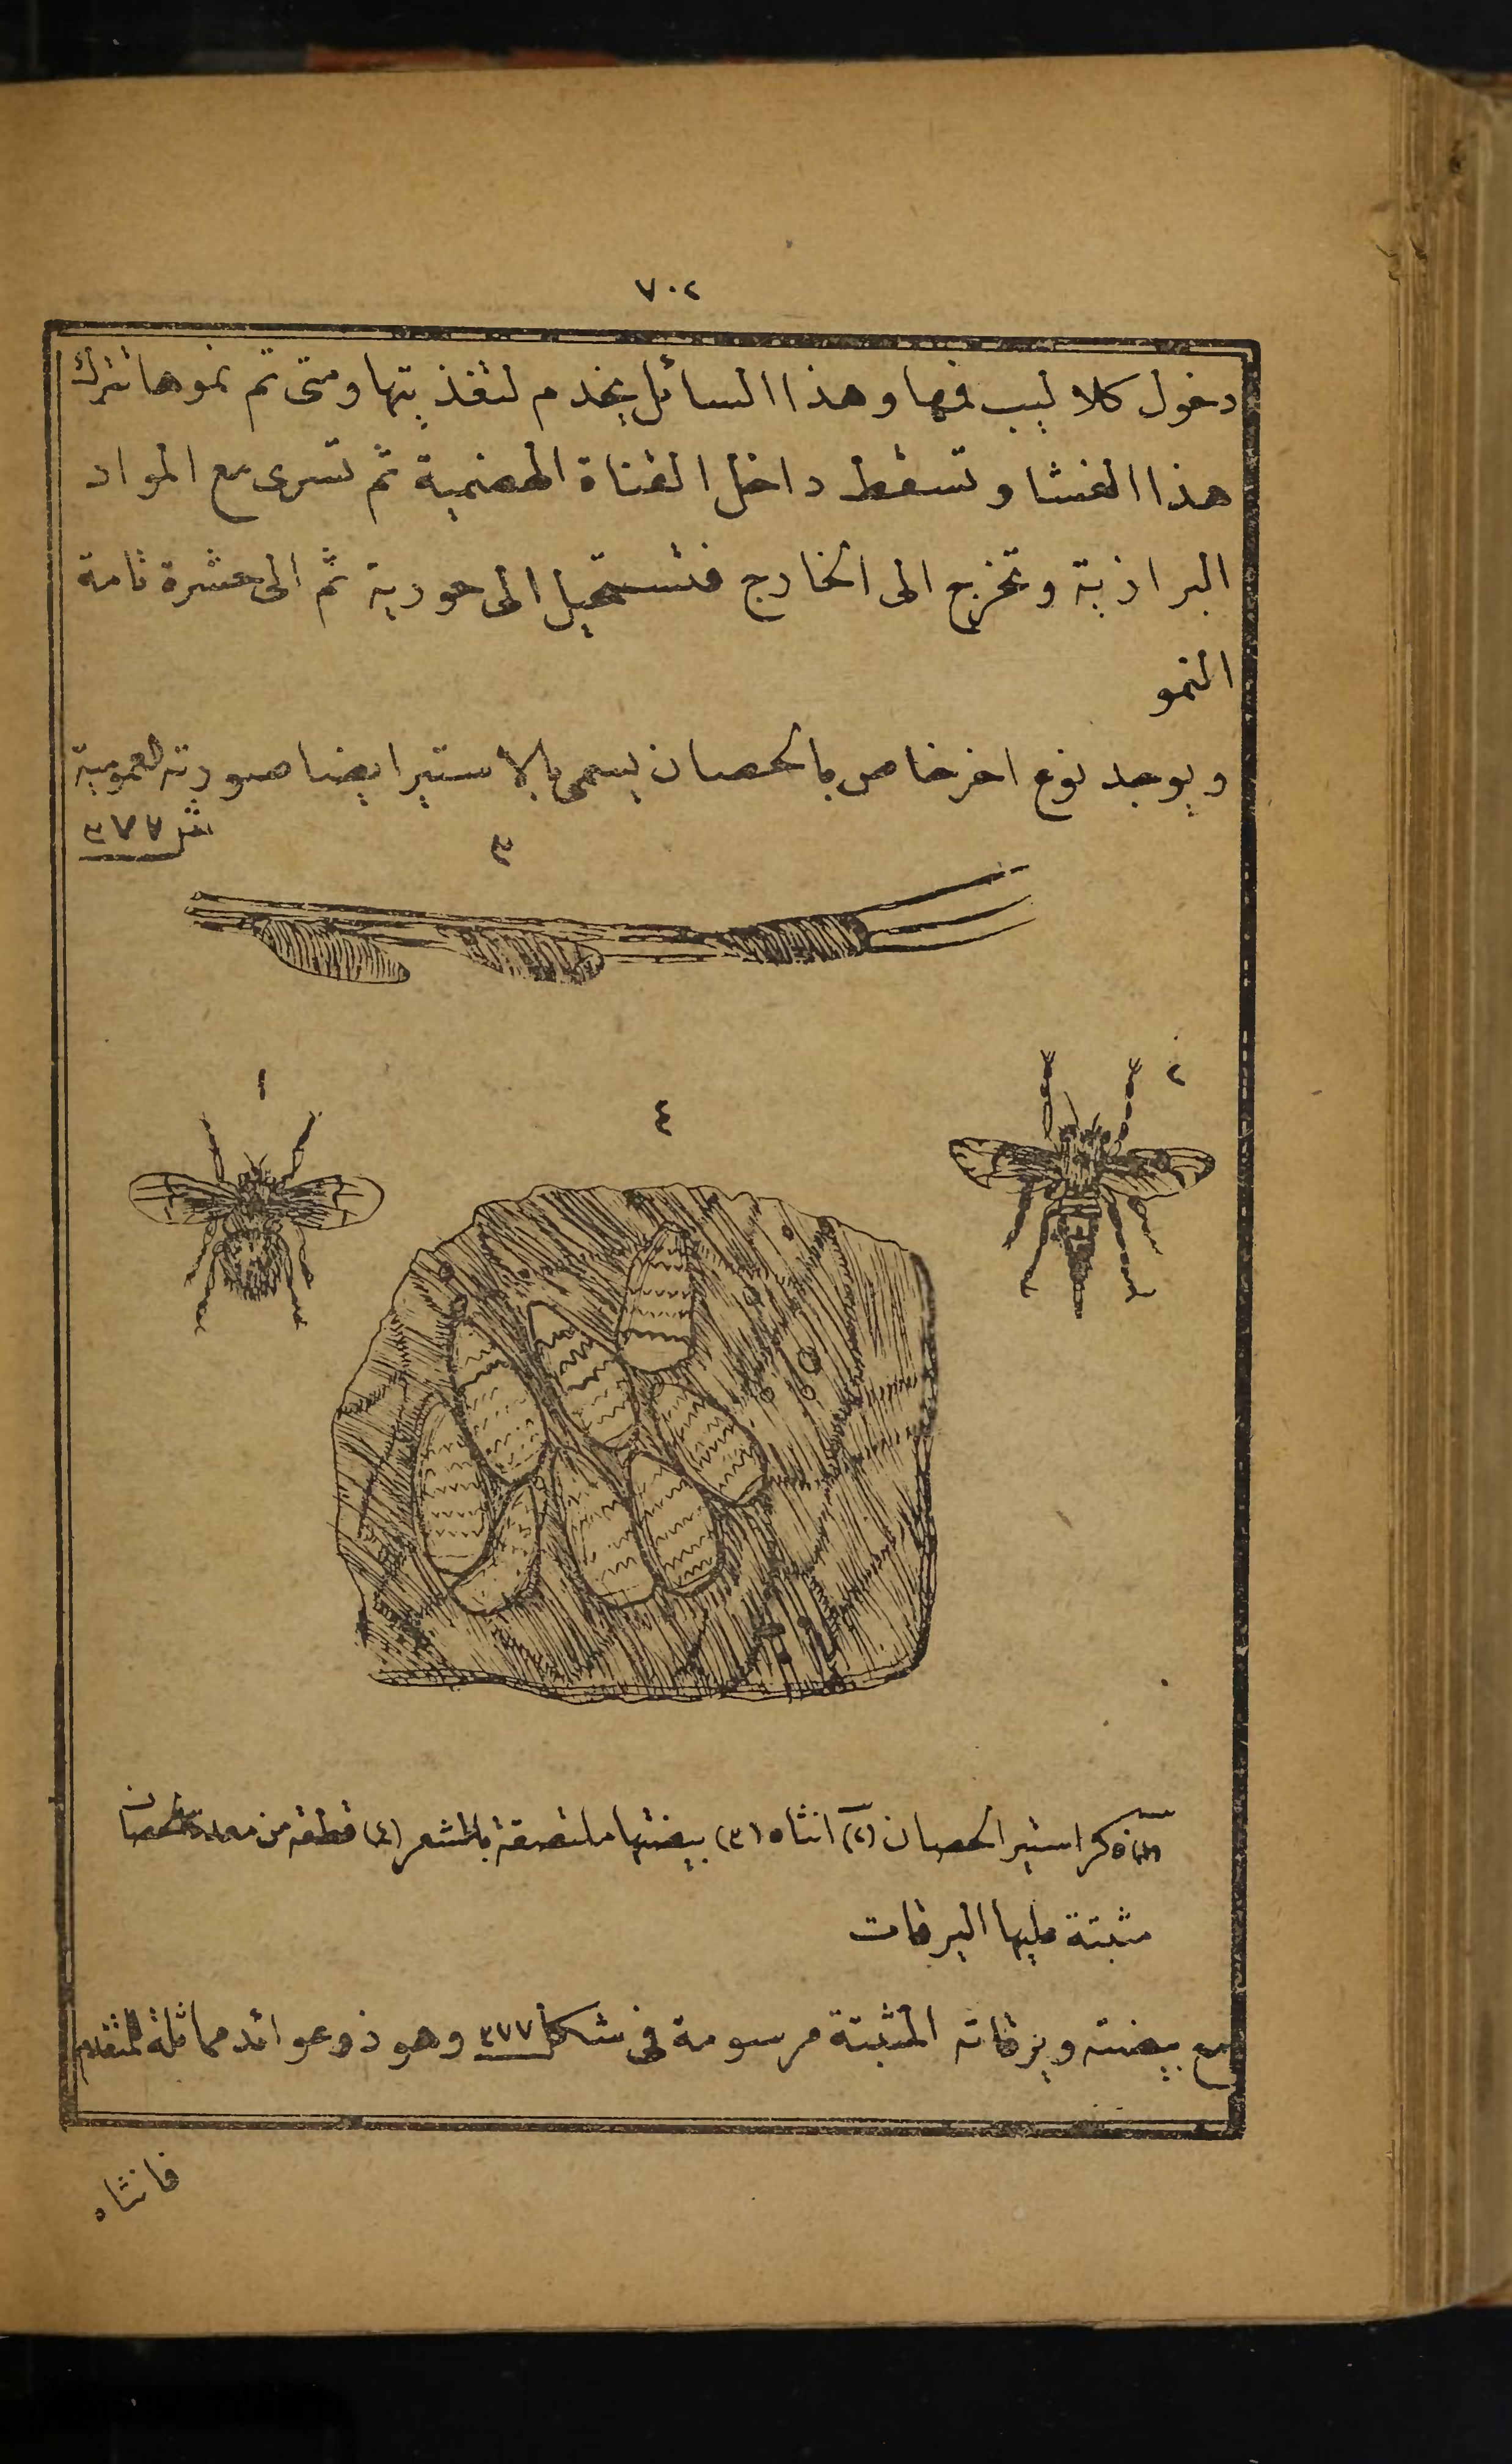 ٧٠٢
دخول كلاليب فمها وهذا السائل يخدم لتغذيتها ومتى تم نموها تترك
هذا الغشا وتسقط داخل القناة الهضمية ثم تسرى مع المواد
البرازية وتخرج الى الخارج فتستحيل الى حورية ثم الى حشرة تامة
النمو
ويوجد نوع اخر خاص بالحصان يسمى بالاستير ايضا صورته العمومية
٣٧٧
٣
١
٢
٤
(١) ذكر استير الحصان (٢) انثاه (٣) بيضتها ملتصقة بالشعر (٤) قطعة من معدة الحصان
مثبتة عليها اليرقات
مع بيضته ويرقاته المثبتة مرسومة فى شكل ٣٧٧ وهو ذو عوائد مماثلة للمتقدم
فانثاه